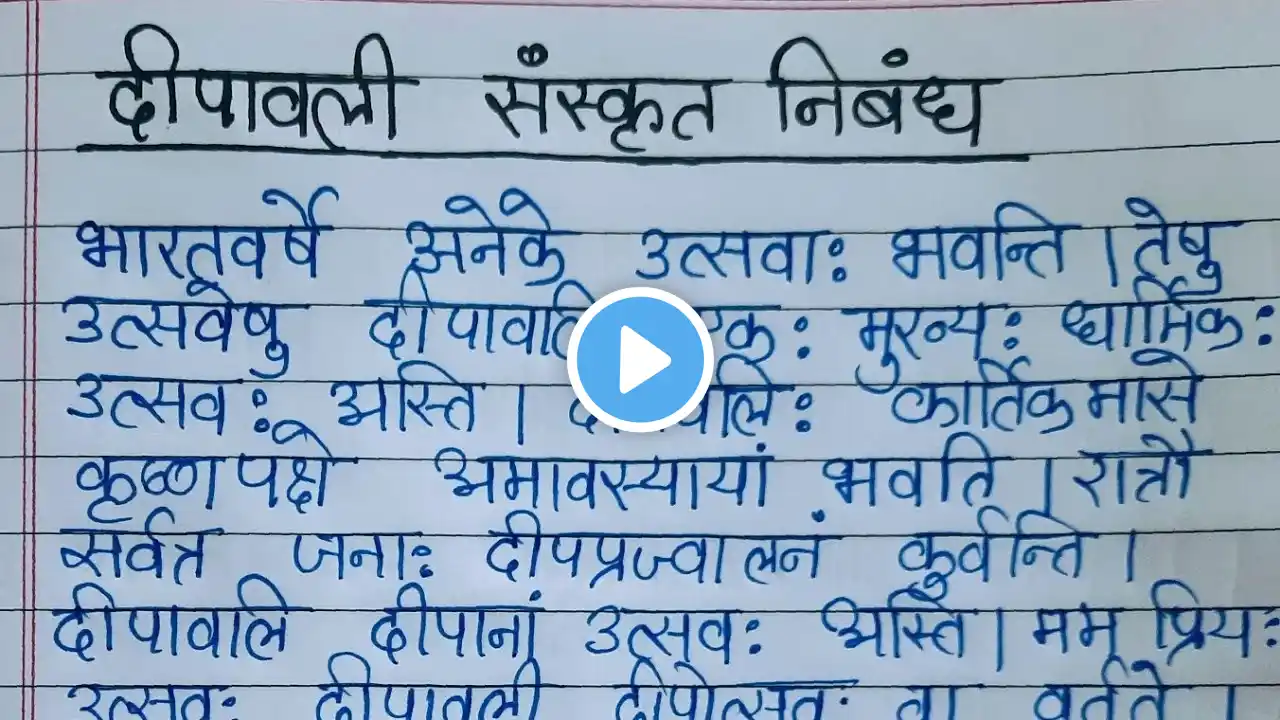 दीपावली संस्कृत निबंध
भारतवर्षे अनेके उत्सवाः भवन्ति । तेषु
उत्सवेषु मुख्यः धार्मिकः
उत्सवः अस्ति ।  कार्तिकमासे
कृष्णपक्षे अमावस्यायां भवति । रात्रौ
सर्वत्र जनाः दीपप्रज्वालनं कुर्वन्ति ।
दीपावलि दीपानां उत्सवः अस्ति । मम प्रियः
उत्सवः दीपावली दीपोत्सवः वा वर्तते ।